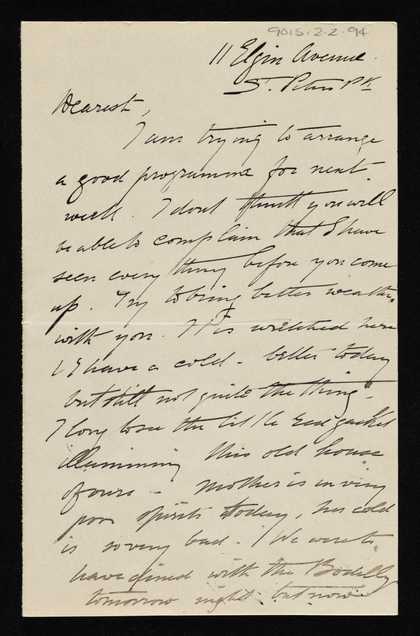 9015.2.2.94
11 Elgin Avenue.
St. Peters Pk
Dearest,
I am trying to arrange
a good programme for next
week. I dont think you will
be able to complain that I have
seen every thing before you come
up. Try to bring better weather
with you. It is wretched here
& I have a cold - better today
but still not quite the thing.
I long to see the little red jacket
illumining this old house
of ours - Mother is in very
poor spirits today, her cold
is so very bad. We were to
have dined with the Bodells
tomorrow night. but now